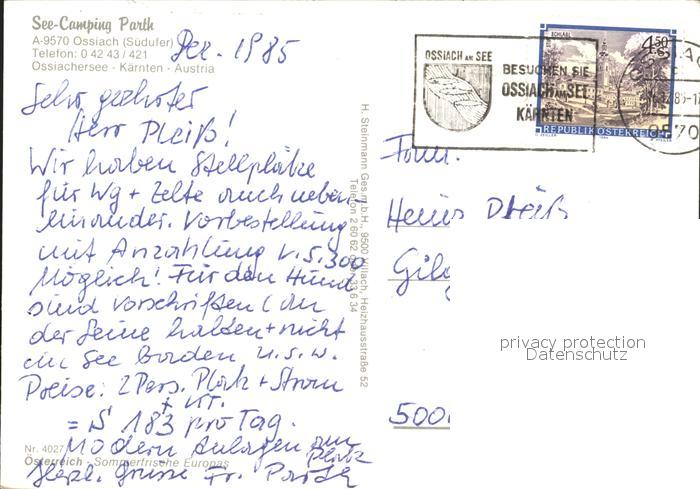 See-Camping Parth
A-9570 Ossiach (Südufer)
Telefon: 0 42 43 / 421
Ossiachersee - Kärnten - Austria
Dez. 1985
Sehr geehrter
Herr Pleiß!
Wir haben Stellplätze
für Wg + Zelte auch neben-
einander. Vorbestellung
mit Anzahlung v. S. 300
Möglich! Für den Hund
sind Vorschriften (an
der Leine halten + nicht
im See baden u.s.w.
Preise: 2 Pers. Platz + Strom
+ KT.
= S 183 pro Tag.
Modern Anlagen am
Platz
Herzl. Grüsse Fr. Parth
Nr. 4027
Österreich - Sommerfrische Europas
H. Steinmann Ges.m.b.H., 9500 Villach, Heizhausstraße 52
Telefon 2 60 62 33 6 34
OSSIACH AM SEE
BESUCHEN SIE
OSSIACH AM SEE
KÄRNTEN
4.50
REPUBLIK ÖSTERREICH
9570
Fam.
Heinz Pleiß
500
privacy protection
Datenschutz